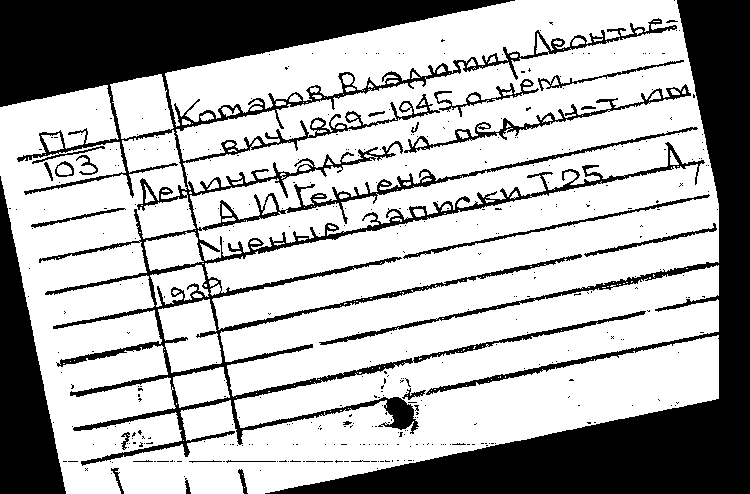 Комаров, Владимир Леонтье-
П7
103
вич, 1869-1945, о нём.
Ленинградский пед. ин-т им.
А. И. Герцена.
Ученые записки Т 25. Л,
1939.